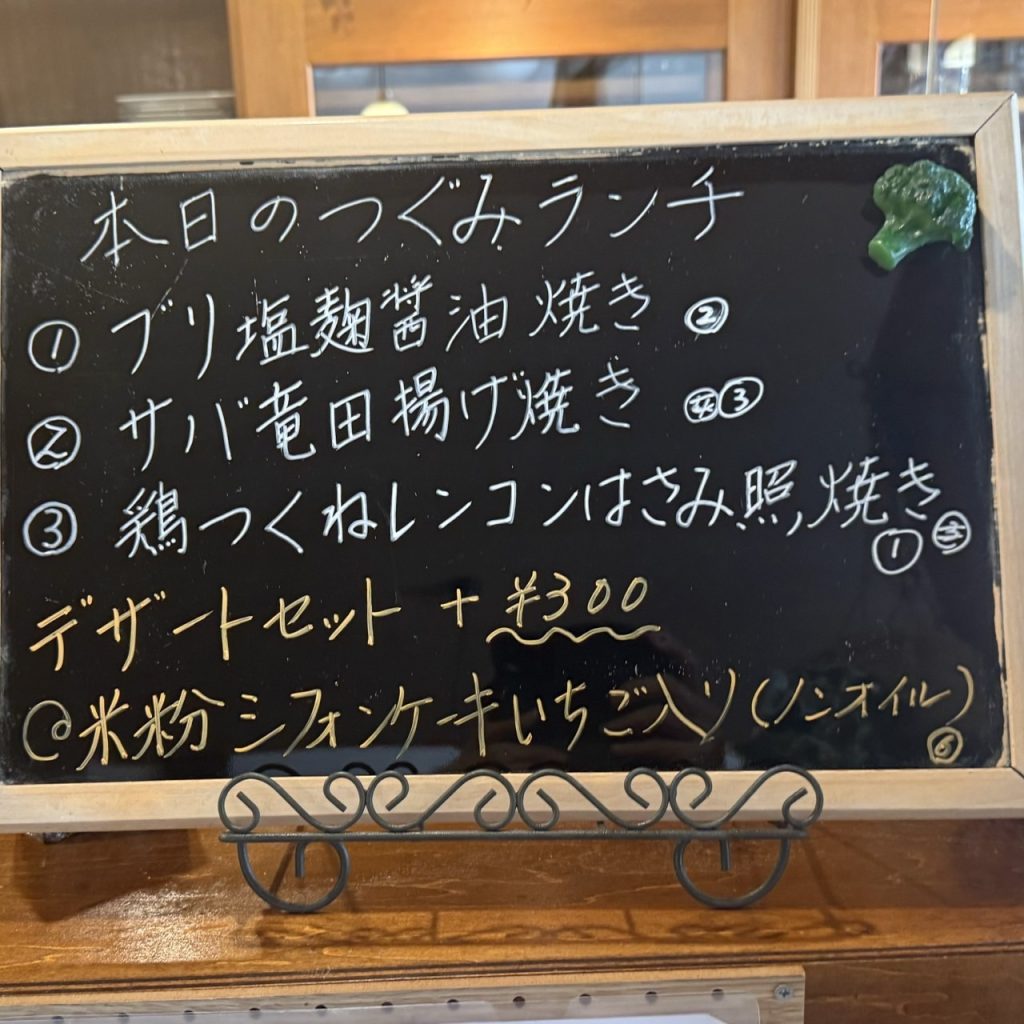 本日のつぐみランチ
① ブリ塩麹醤油焼き ②
② サバ竜田揚げ焼き ③
③ 鶏つくねレンコンはさみ照焼き
①
デザートセット + ¥300
@米粉シフォンケーキいちご入り(ノンオイル)